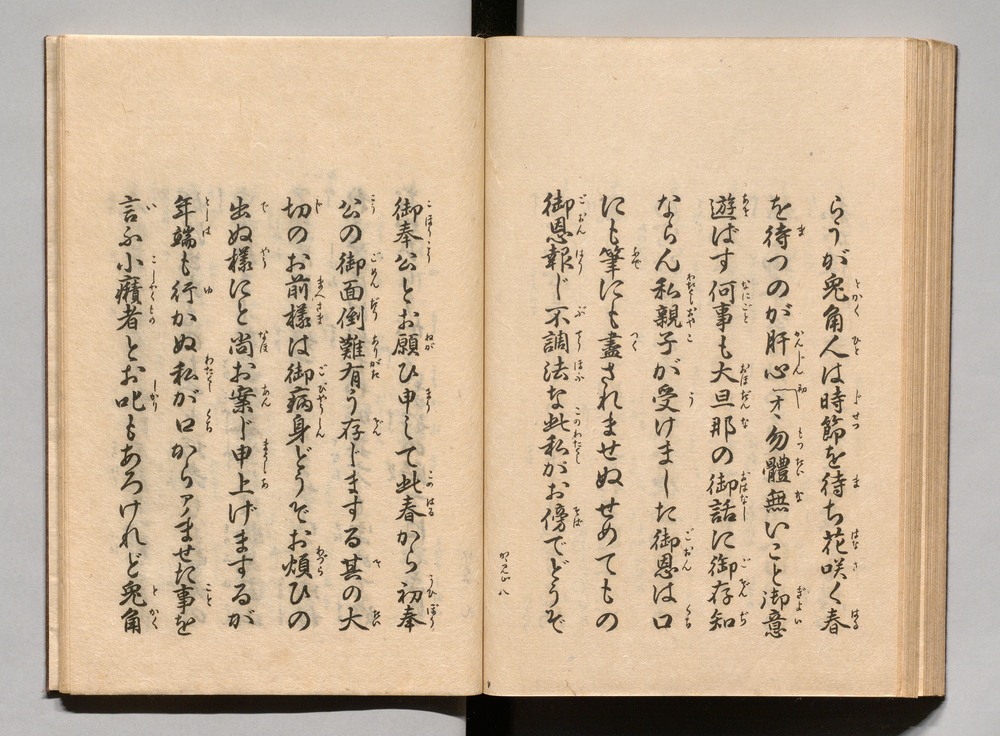 らうが兎角人は時節を待ち花咲く春
を待つのが肝心「オヽ勿體無いこと御意
遊ばす何事も大旦那の御話に御存知
ならん私親子が受けました御恩は口
にも筆にも盡されませぬせめてもの
御恩報じ不調法な此私がお傍でどうぞ
御奉公とお願ひ申して此春から初奉
公の御面倒難有う存じまする其の大
切のお前樣は御病身どうぞお煩ひの
出ぬ樣にと尚お案じ申上げまするが
年端も行かぬ私が口からアノませた事を
言ふ小癪者とお叱もあろけれど兎角